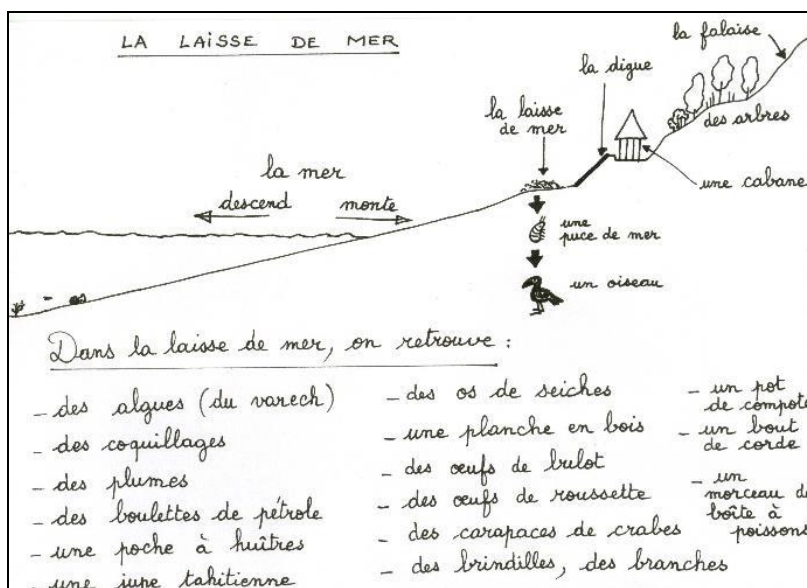 LA LAISSE DE MER
la falaise
la digue
la laisse
de mer
des arbres
une cabane
la mer
descend
monte
une
puce de mer
un oiseau
Dans la laisse de mer, on retrouve :
- des algues (du varech)
- des coquillages
- des plumes
- des boulettes de pétrole
- une poche à huîtres
- une jupe tahitienne
- des os de seiches
- une planche en bois
- des œufs de bulot
- des œufs de roussette
- des carapaces de crabes
- des brindilles, des branches
- un pot
de compote
- un bout
de corde
- un
morceau de
boîte à
poissons